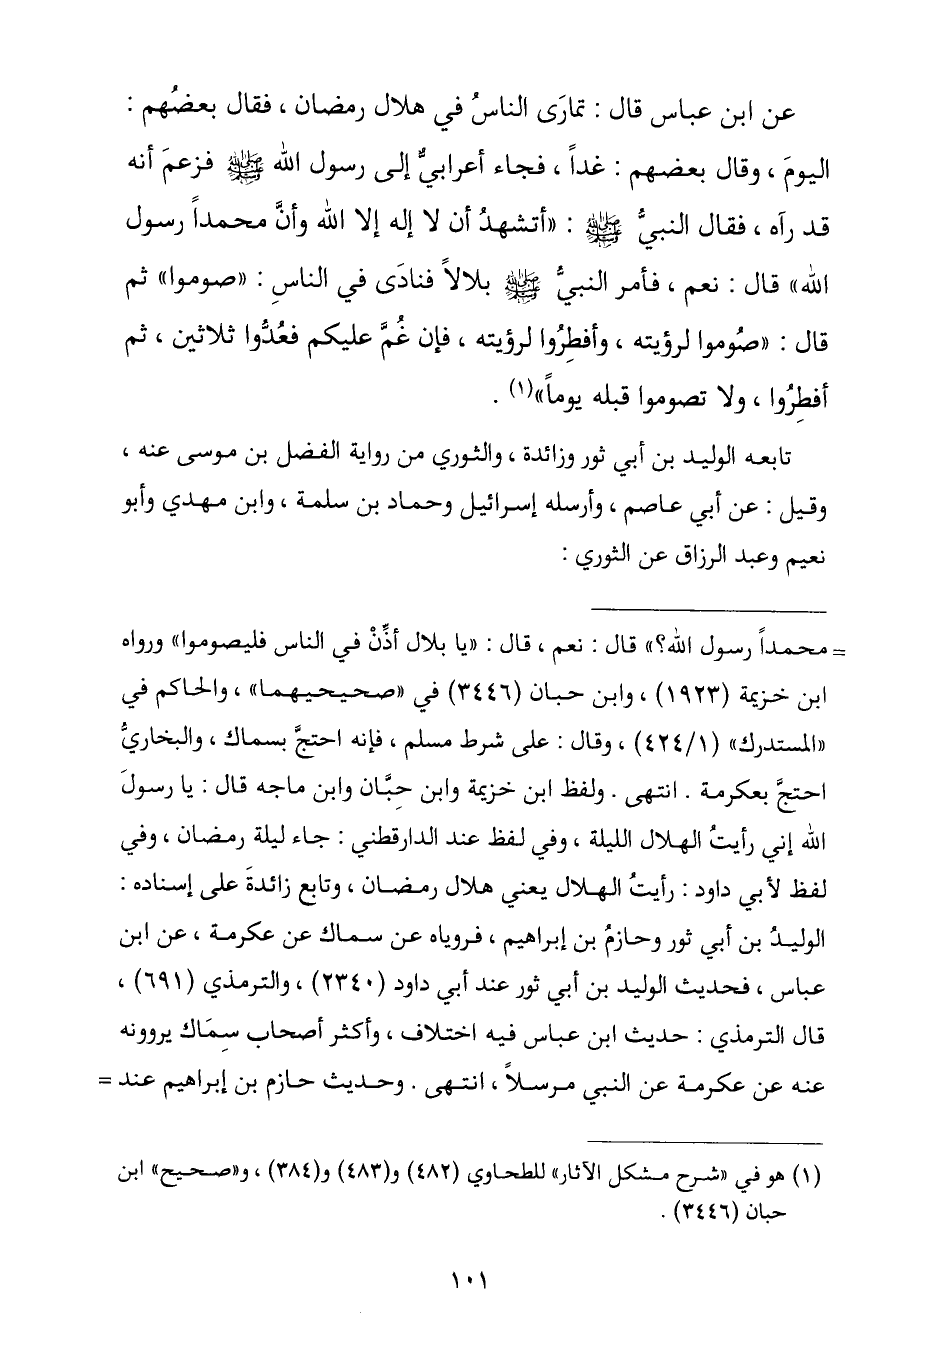 عن ابن عباس قال : تمارَى الناسُ في هلال رمضان ، فقال بعضُهم :
اليومَ ، وقال بعضهم : غداً ، فجاء أعرابيٌّ إلى رسول الله ﷺ فزعمَ أنه
قد رآه ، فقال النبيُّ ﷺ : «أتشهدُ أن لا إله إلا الله وأنَّ محمداً رسول
الله» قال : نعم ، فأمر النبيُّ ﷺ بلالاً فنادَى في الناسِ : «صوموا» ثم
قال : «صُوموا لرؤيته ، وأفطِرُوا لرؤيته ، فإن غُمَّ عليكم فعُدُّوا ثلاثين ، ثم
أفطِرُوا ، ولا تصوموا قبله يوماً»(١) .
تابعه الوليد بن أبي ثور وزائدة ، والثوري من رواية الفضل بن موسى عنه ،
وقيل : عن أبي عاصم ، وأرسله إسرائيل وحماد بن سلمة ، وابن مهدي وأبو
نعيم وعبد الرزاق عن الثوري :
= محمداً رسول الله؟» قال : نعم ، قال : «يا بلال أذِّنْ في الناس فليصوموا» ورواه
ابن خزيمة (١٩٢٣) ، وابن حبان (٣٤٤٦) في «صحيحيهما» ، والحاكم في
«المستدرك» (٤٢٤/١) ، وقال : على شرط مسلم ، فإنه احتجَّ بسماك ، والبخاريُّ
احتجَّ بعكرمة . انتهى . ولفظ ابن خزيمة وابن حِبَّان وابن ماجه قال : يا رسولَ
الله إني رأيتُ الهلال الليلة ، وفي لفظ عند الدارقطني : جاء ليلة رمضان ، وفي
لفظ لأبي داود : رأيتُ الهلال يعني هلال رمضان ، وتابع زائدةَ على إسناده :
الوليدُ بن أبي ثور وحازمُ بن إبراهيم ، فروياه عن سماك عن عكرمة ، عن ابن
عباس ، فحديث الوليد بن أبي ثور عند أبي داود (٢٣٤٠) ، والترمذي (٦٩١) ،
قال الترمذي : حديث ابن عباس فيه اختلاف ، وأكثر أصحاب سِمَاك يروونه
عنه عن عكرمة عن النبي مرسلاً ، انتهى . وحديث حازم بن إبراهيم عند =
(١) هو في «شرح مشكل الآثار» للطحاوي (٤٨٢) و(٤٨٣) و(٣٨٤) ، و«صحيح» ابن
حبان (٣٤٤٦) .
١٠١